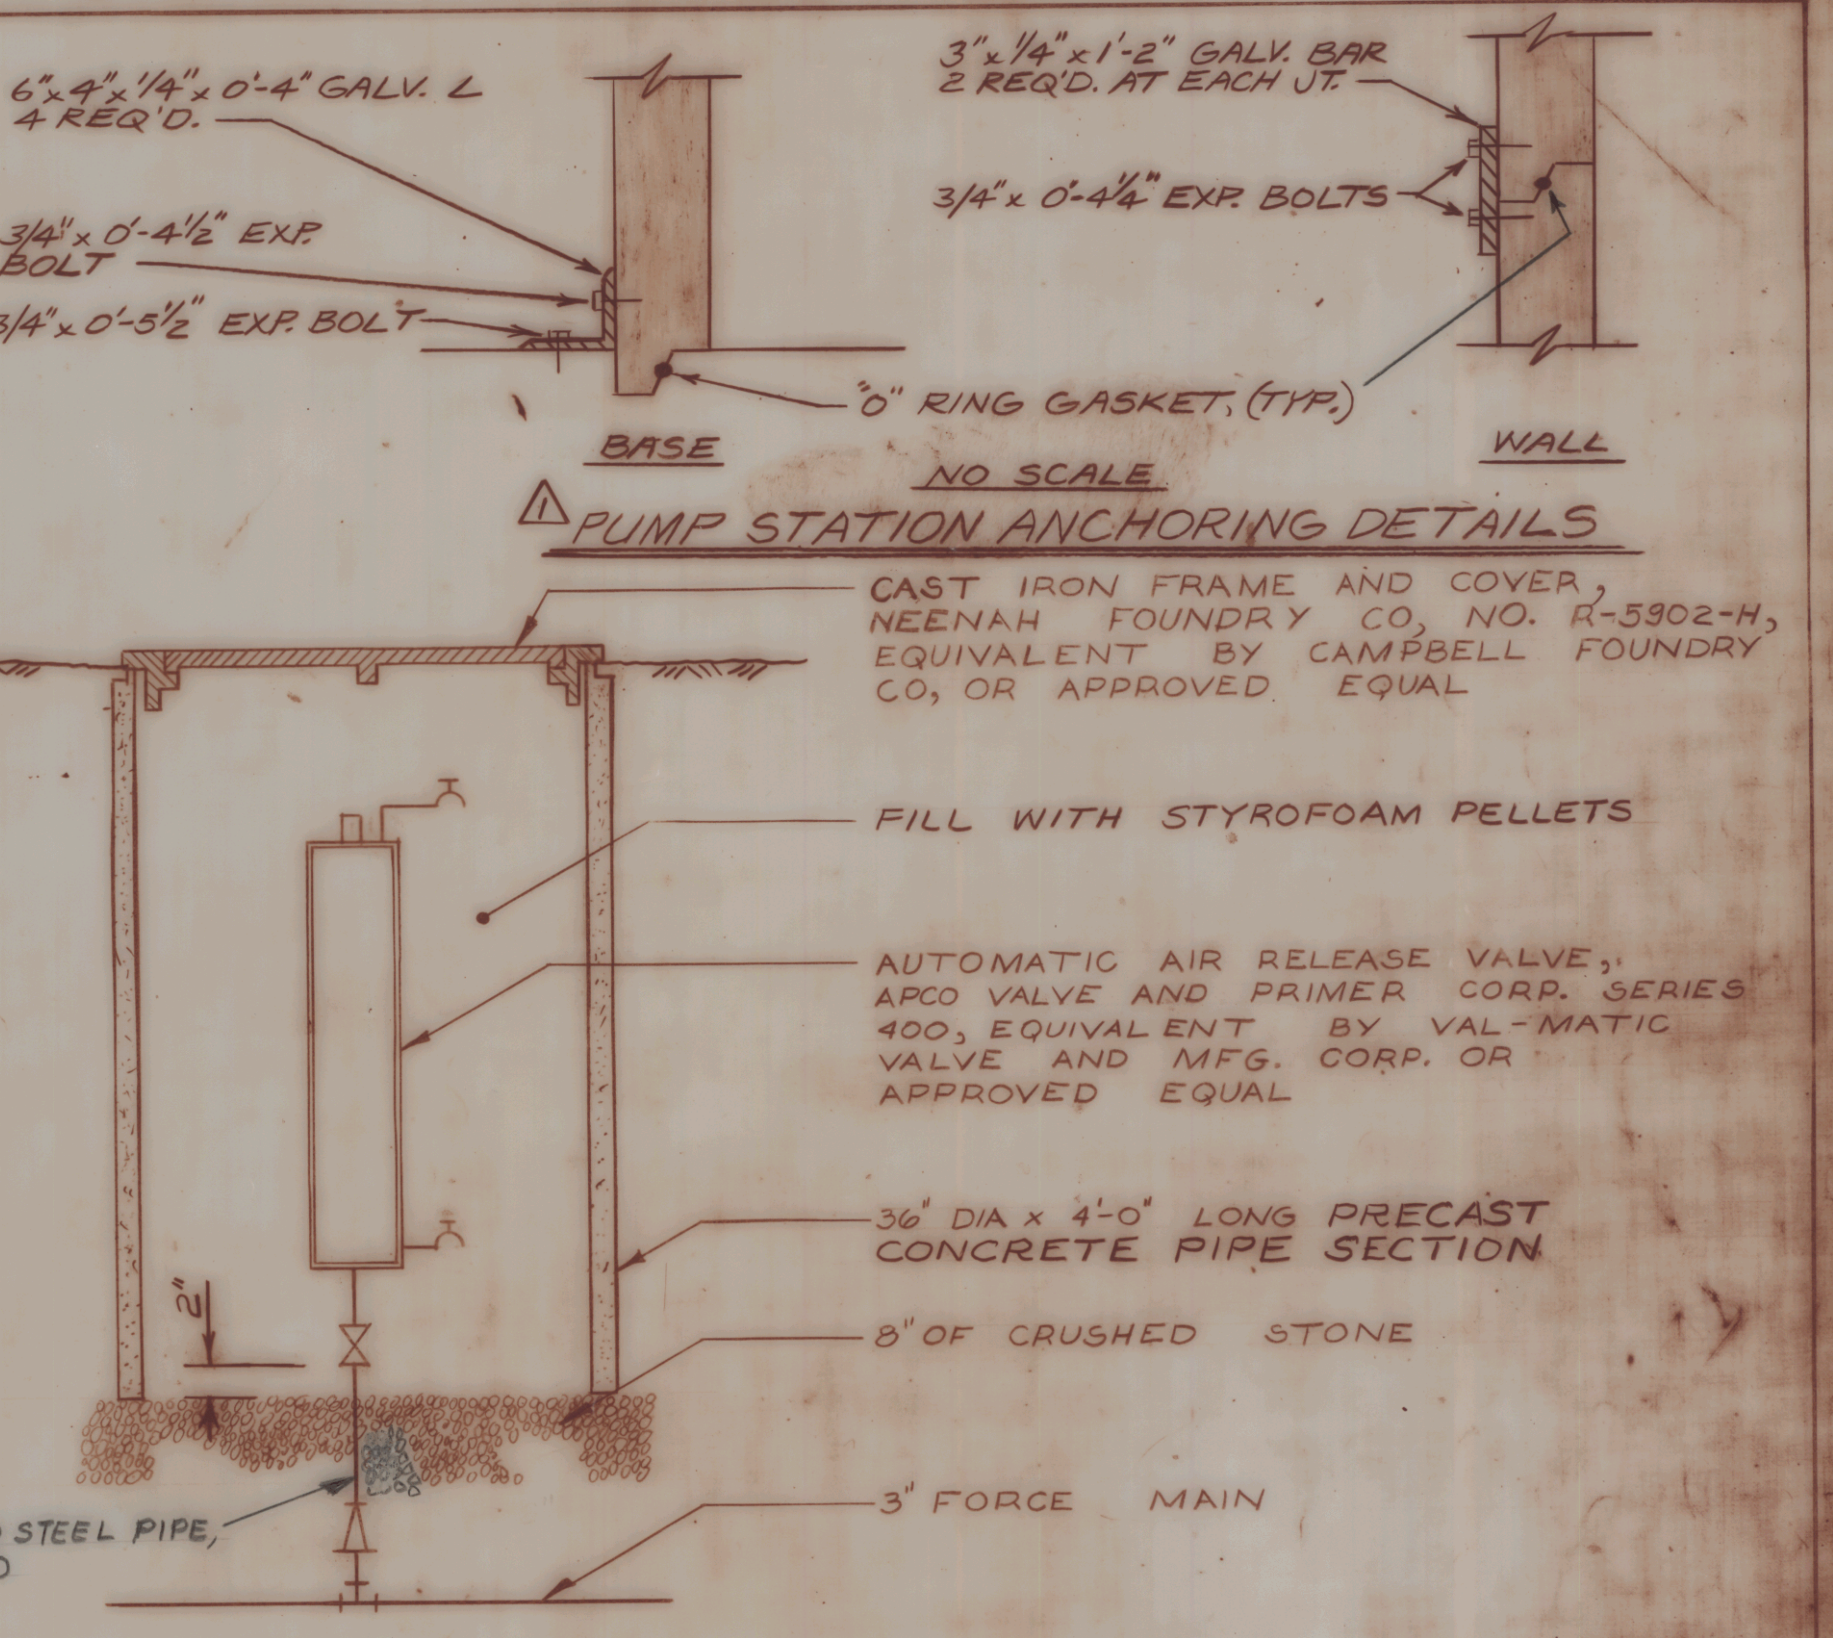 6"x4"x1/4"x 0'-4" GALV. L
4 REQ'D.
3/4"x 0'-4 1/2" EXP.
BOLT
3/4"x 0'-5 1/2" EXP. BOLT
3"x1/4"x1'-2" GALV. BAR
2 REQ'D. AT EACH JT.
3/4"x 0'-4 1/4" EXP. BOLTS
"O" RING GASKET, (TYP.)
BASE
WALL
NO SCALE
1 PUMP STATION ANCHORING DETAILS
CAST IRON FRAME AND COVER,
NEENAH FOUNDRY CO, NO. R-5902-H,
EQUIVALENT BY CAMPBELL FOUNDRY
CO, OR APPROVED EQUAL
FILL WITH STYROFOAM PELLETS
AUTOMATIC AIR RELEASE VALVE,
APCO VALVE AND PRIMER CORP. SERIES
400, EQUIVALENT BY VAL-MATIC
VALVE AND MFG. CORP. OR
APPROVED EQUAL
36" DIA x 4'-0" LONG PRECAST
CONCRETE PIPE SECTION
2"
8" OF CRUSHED STONE
3" FORCE MAIN
STEEL PIPE,